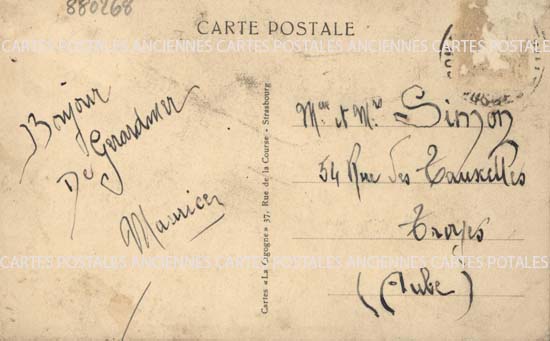 880268
CARTE POSTALE
CARTES POSTALES ANCIENNES CARTES POSTALES ANCIENNES CARTES POSTALES
Bonjour
De Gerardmer
Maurice
Cartes « La Cigogne » 37, Rue de la Course - Strasbourg
Mme et Mr Simon
54 Rue des Tauxelles
Troyes
(Aube)
CARTES POSTALES ANCIENNES CARTES POSTALES ANCIENNES CARTES POTALES